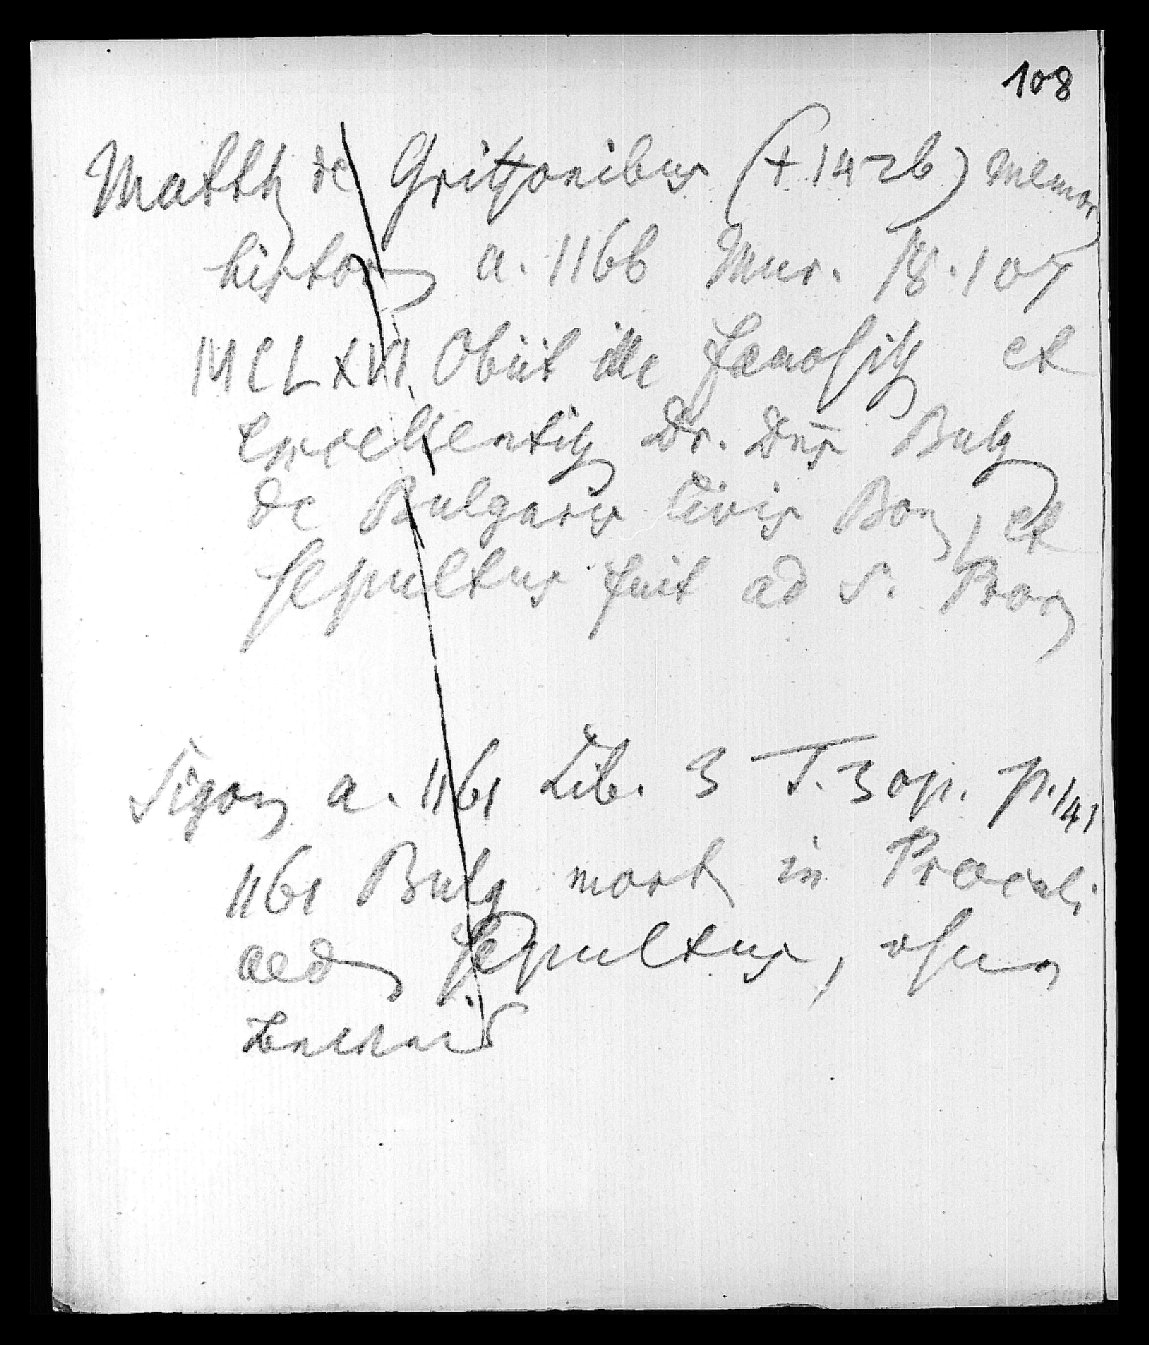 108
Matth de Griffonibus († 1426) memor
histor a. 1166 Mur. 18.107
MCLXVI Obiit ille famosiss et
excellentiss Dr. Dns Bulg
de Bulgaris Civis Bon, et
sepultus fuit ad S. Proc
Sigon a. 1161 Lib. 3 T. 3 op. p. 141
1161 Bulg mort in Proculi
aed sepultus,